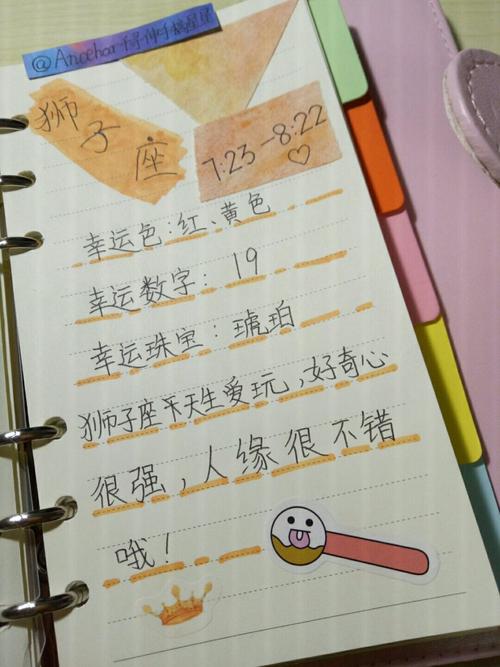 @Ancehar
狮子座
7.23-8.22
幸运色:红、黄色
幸运数字: 19
幸运珠宝: 琥珀
狮子座天生爱玩,好奇心
很强,人缘很不错
哦!